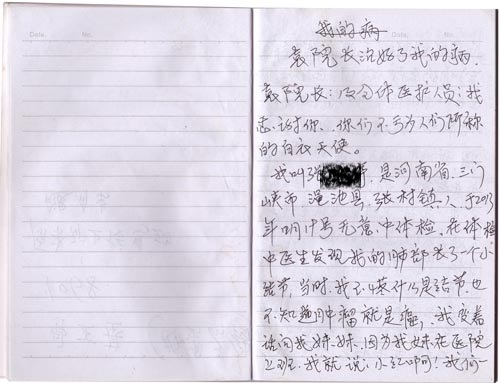 Date. No.
Date. No.
我的病
袁院长治好了我的病.
袁院长:及全体医护人员:我
志谢你、你们不亏为人们所称
的白衣天使。
我叫张 是河南省三门
峡市渑池县张村镇人于2013
年 月 号无意中体检、在体检
中医生发现我的肺部长了一个小
结节,当时、我不懂什么是结节.也
不知道肿瘤就是癌,我变着
话问我妹妹,因为我妹在医院
上班.我就说:小红啊!我问一